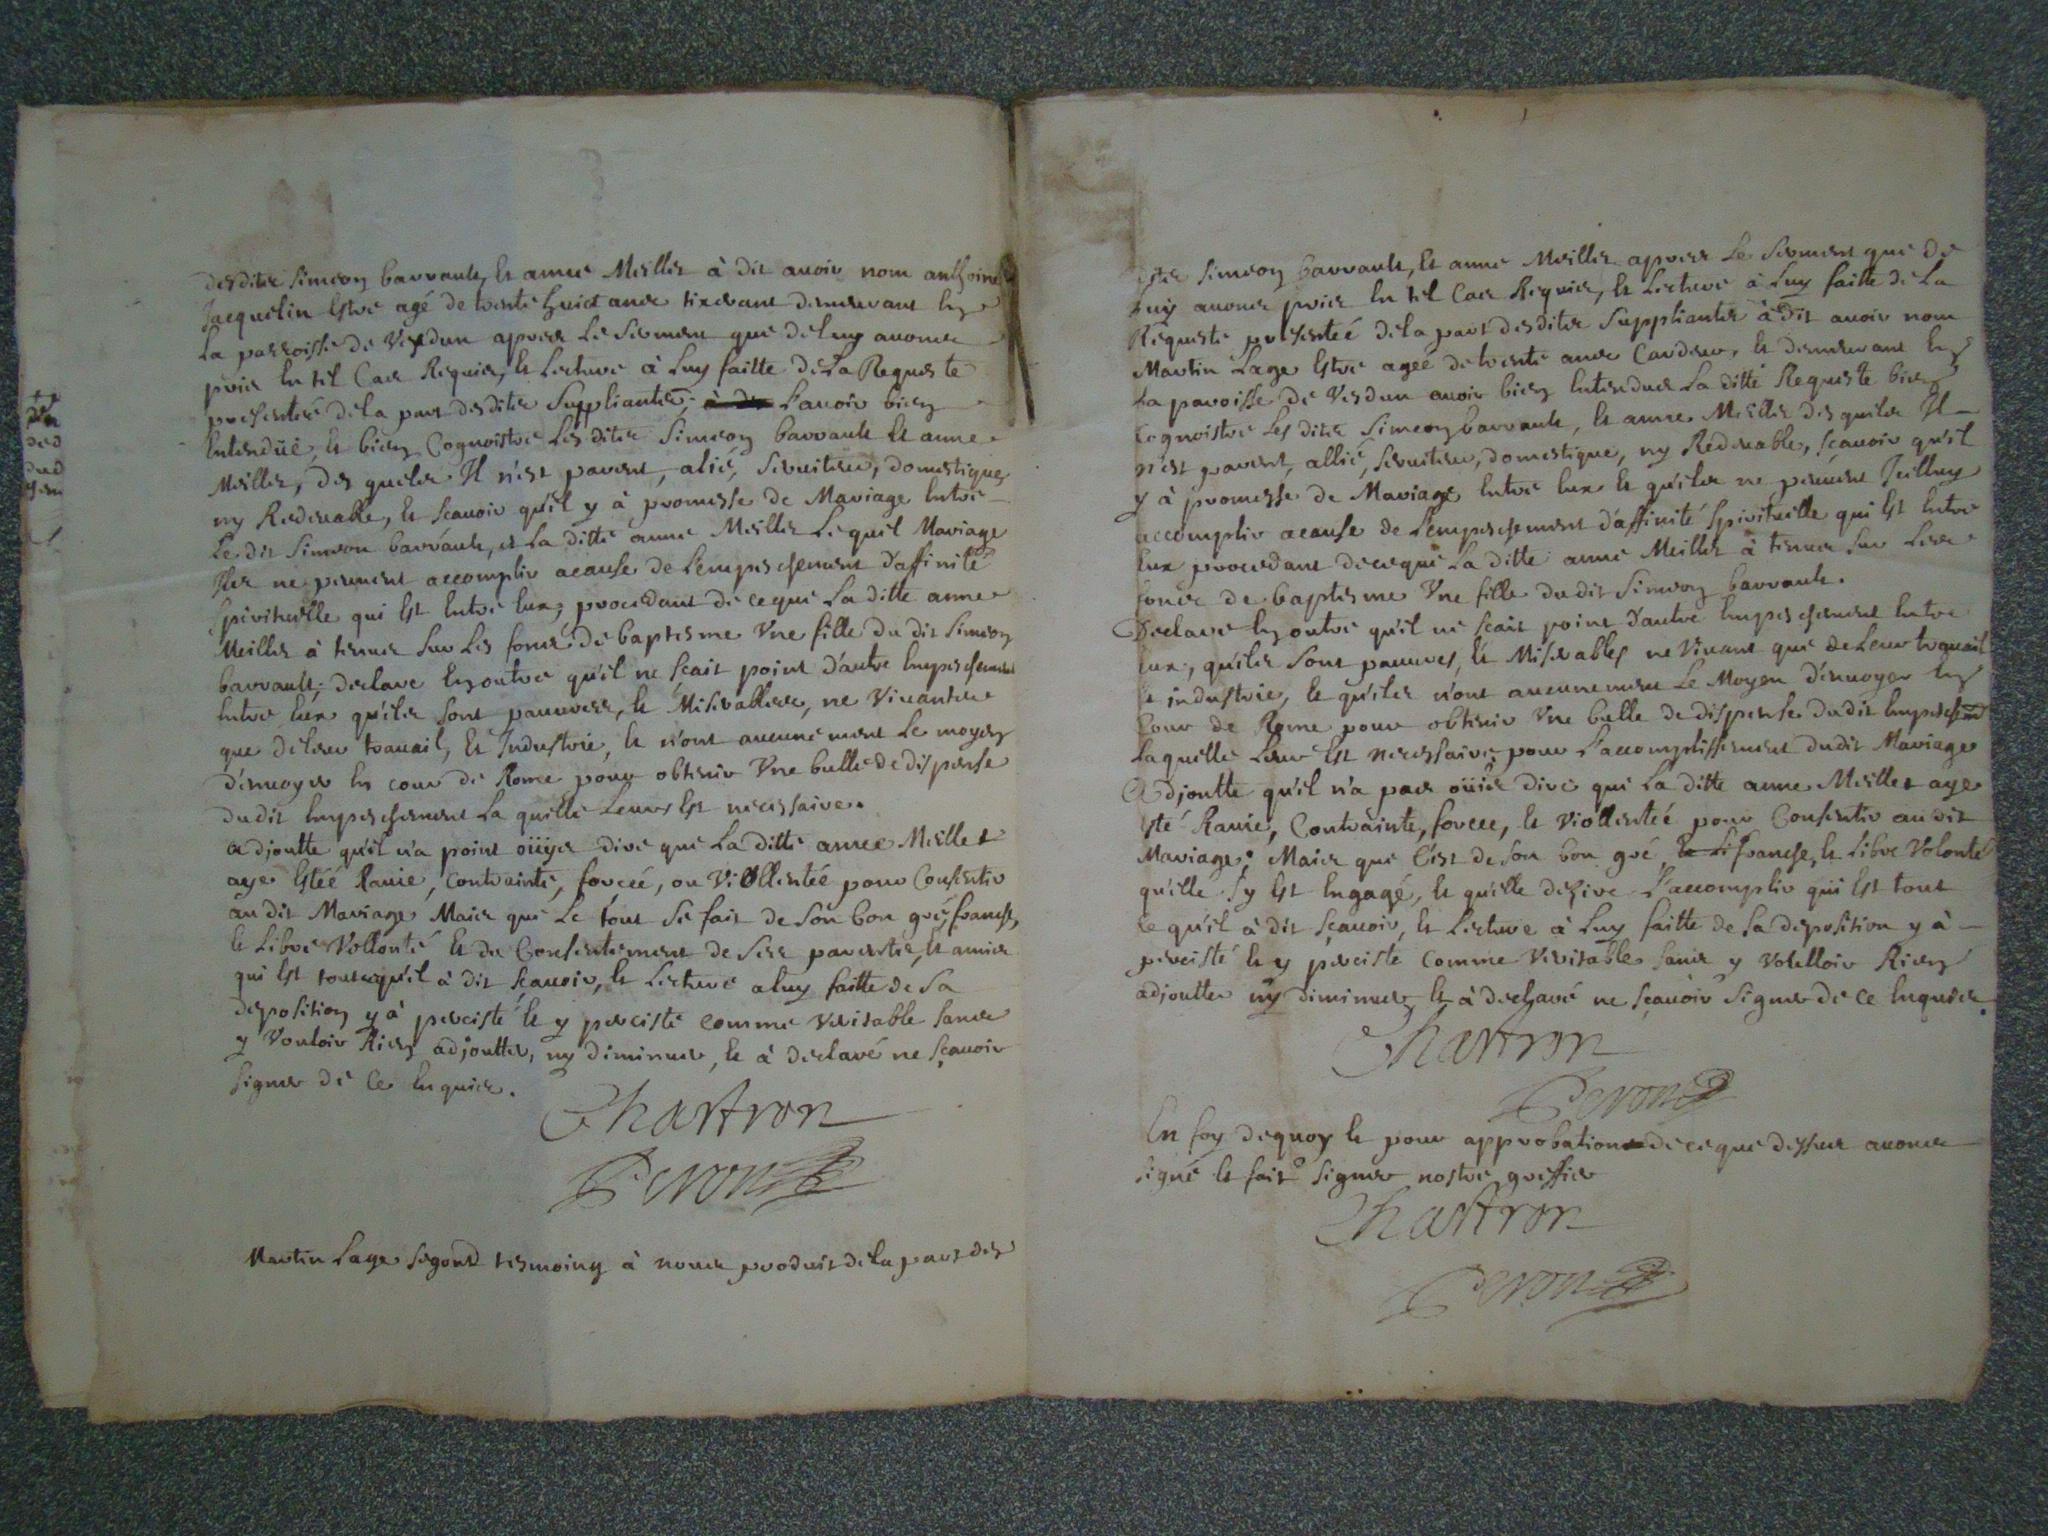 desdits Simeon barrault, et anne Meillet à dit avoir nom anthoine
Jacquelin estre agé de trente huict ans tixerant demeurant en
La parroisse de Verdun apres Le serment que de luy avons
pris en tel Cas Requis, et Lecture à Luy faitte de La Requeste
presentéé de la part desdits Suppliants, L'avoir bien
Entenduë, et bien Cognoistre Les dits Simeon barrault et anne
Meillet, des quels Il n'est parent, alié, serviteur, domestique,
ny Redevable, et sçavoir qu'il y à promesse de Mariage Entre
Le dit Simeon barrault, et La ditte anne Meillet Lequel Mariage
Ils ne peuvent accomplir acause de L'empeschement d'affinité
Spirituelle qui Est Entre Eux, procedant de ce que La ditte anne
Meillet à tenue sur Les fons de baptesme Une fille du dit Simeon
barrault, declare En outre qu'il ne sçait point d'autre Empeschement
Entre Eux qu'ils sont pauvres, et Miserables, ne Vivants
que de Leur travail, et Industrie, et n'ont aucunement Le moyen
d'envoyer En cour de Rome pour obtenir Une bulle de dispense
du dit Empeschement La quelle Leurs Est necessaire.
adjoutte qu'il n'a point oüiyr dire que La ditte anne Meillet
aye Estéé Ravie, Contrainte, forcéé, ou Viollentéé pour Consentir
au dit Mariage Mais que Le tout se fait de son bon gré, franche,
et Libre Vollonté et du Consentement de ses parents, et amis
qui Est tout ce qu'il à dit sçavoir, et Lecture a luy faitte de sa
deposition y à perciste et y perciste comme veritable sans
y Vouloir Rien adjoutter, ny diminuer, et à declaré ne sçavoir
signer de ce Enquis.
Chartron
Peron
Martin Lage segond tesmoing à nous produit de la part des
dits Simeon barrault, et anne Meillet apres Le serment que de
Luy avons pris En tel Cas Requis, et Lecture à Luy faitte de La
Requeste presentéé de la part desdits Suppliants à dit avoir nom
Martin Lage Estre agéé de trente ans Cardeur, et demeurant En
La paroisse de Verdun avoir bien Entendue La ditte Requeste bien
Cognoistre Les dits Simeon barrault, et anne Meillet des quels Il
n'est parent, allié, serviteur, domestique, ny Redevable, sçavoir qu'il
y à promesse de Mariage Entre Eux et qu'ils ne peuvent Icelluy
accomplir acause de L'empeschement d'affinité Spirituelle qui Est Entre
Eux procedant de ce que La ditte anne Meillet à tenue sur Les
fons de baptesme Une fille du dit Simeon barrault.
Declare En outre qu'il ne sçait point d'autre Empeschement Entre
Eux, qu'ils sont pauvres, et Miserables ne Vivant que de Leur travail
et industrie, et qu'ils n'ont aucunement Le Moyen d'envoyer En
Cour de Rome pour obtenir Une bulle de dispense du dit Empeschemt
Laquelle Leur Est necessaire pour L'accomplissement du dit Mariage
Adjoutte qu'il n'a pas oüir dire que La ditte anne Meillet aye
sté Ravie, Contrainte, forcée, et Viollentéé pour Consentir au dit
Mariage; Mais que C'est de son bon gré, franche, et Libre Volonté
qu'elle s'y Est Engagé, et qu'elle desire L'accomplir qui Est tout
ce qu'il à dit sçavoir, et Lecture à Luy faitte de sa deposition y à
perciste et y perciste comme Veritable sans y Volloir Rien
adjoutter ny diminuer, et à declaré ne sçavoir signer de ce Enquis.
Chartron
Peron
En foy dequoy et pour approbation de ce que dessus avons
signé et fait signer nostre greffier
Chartron
Peron